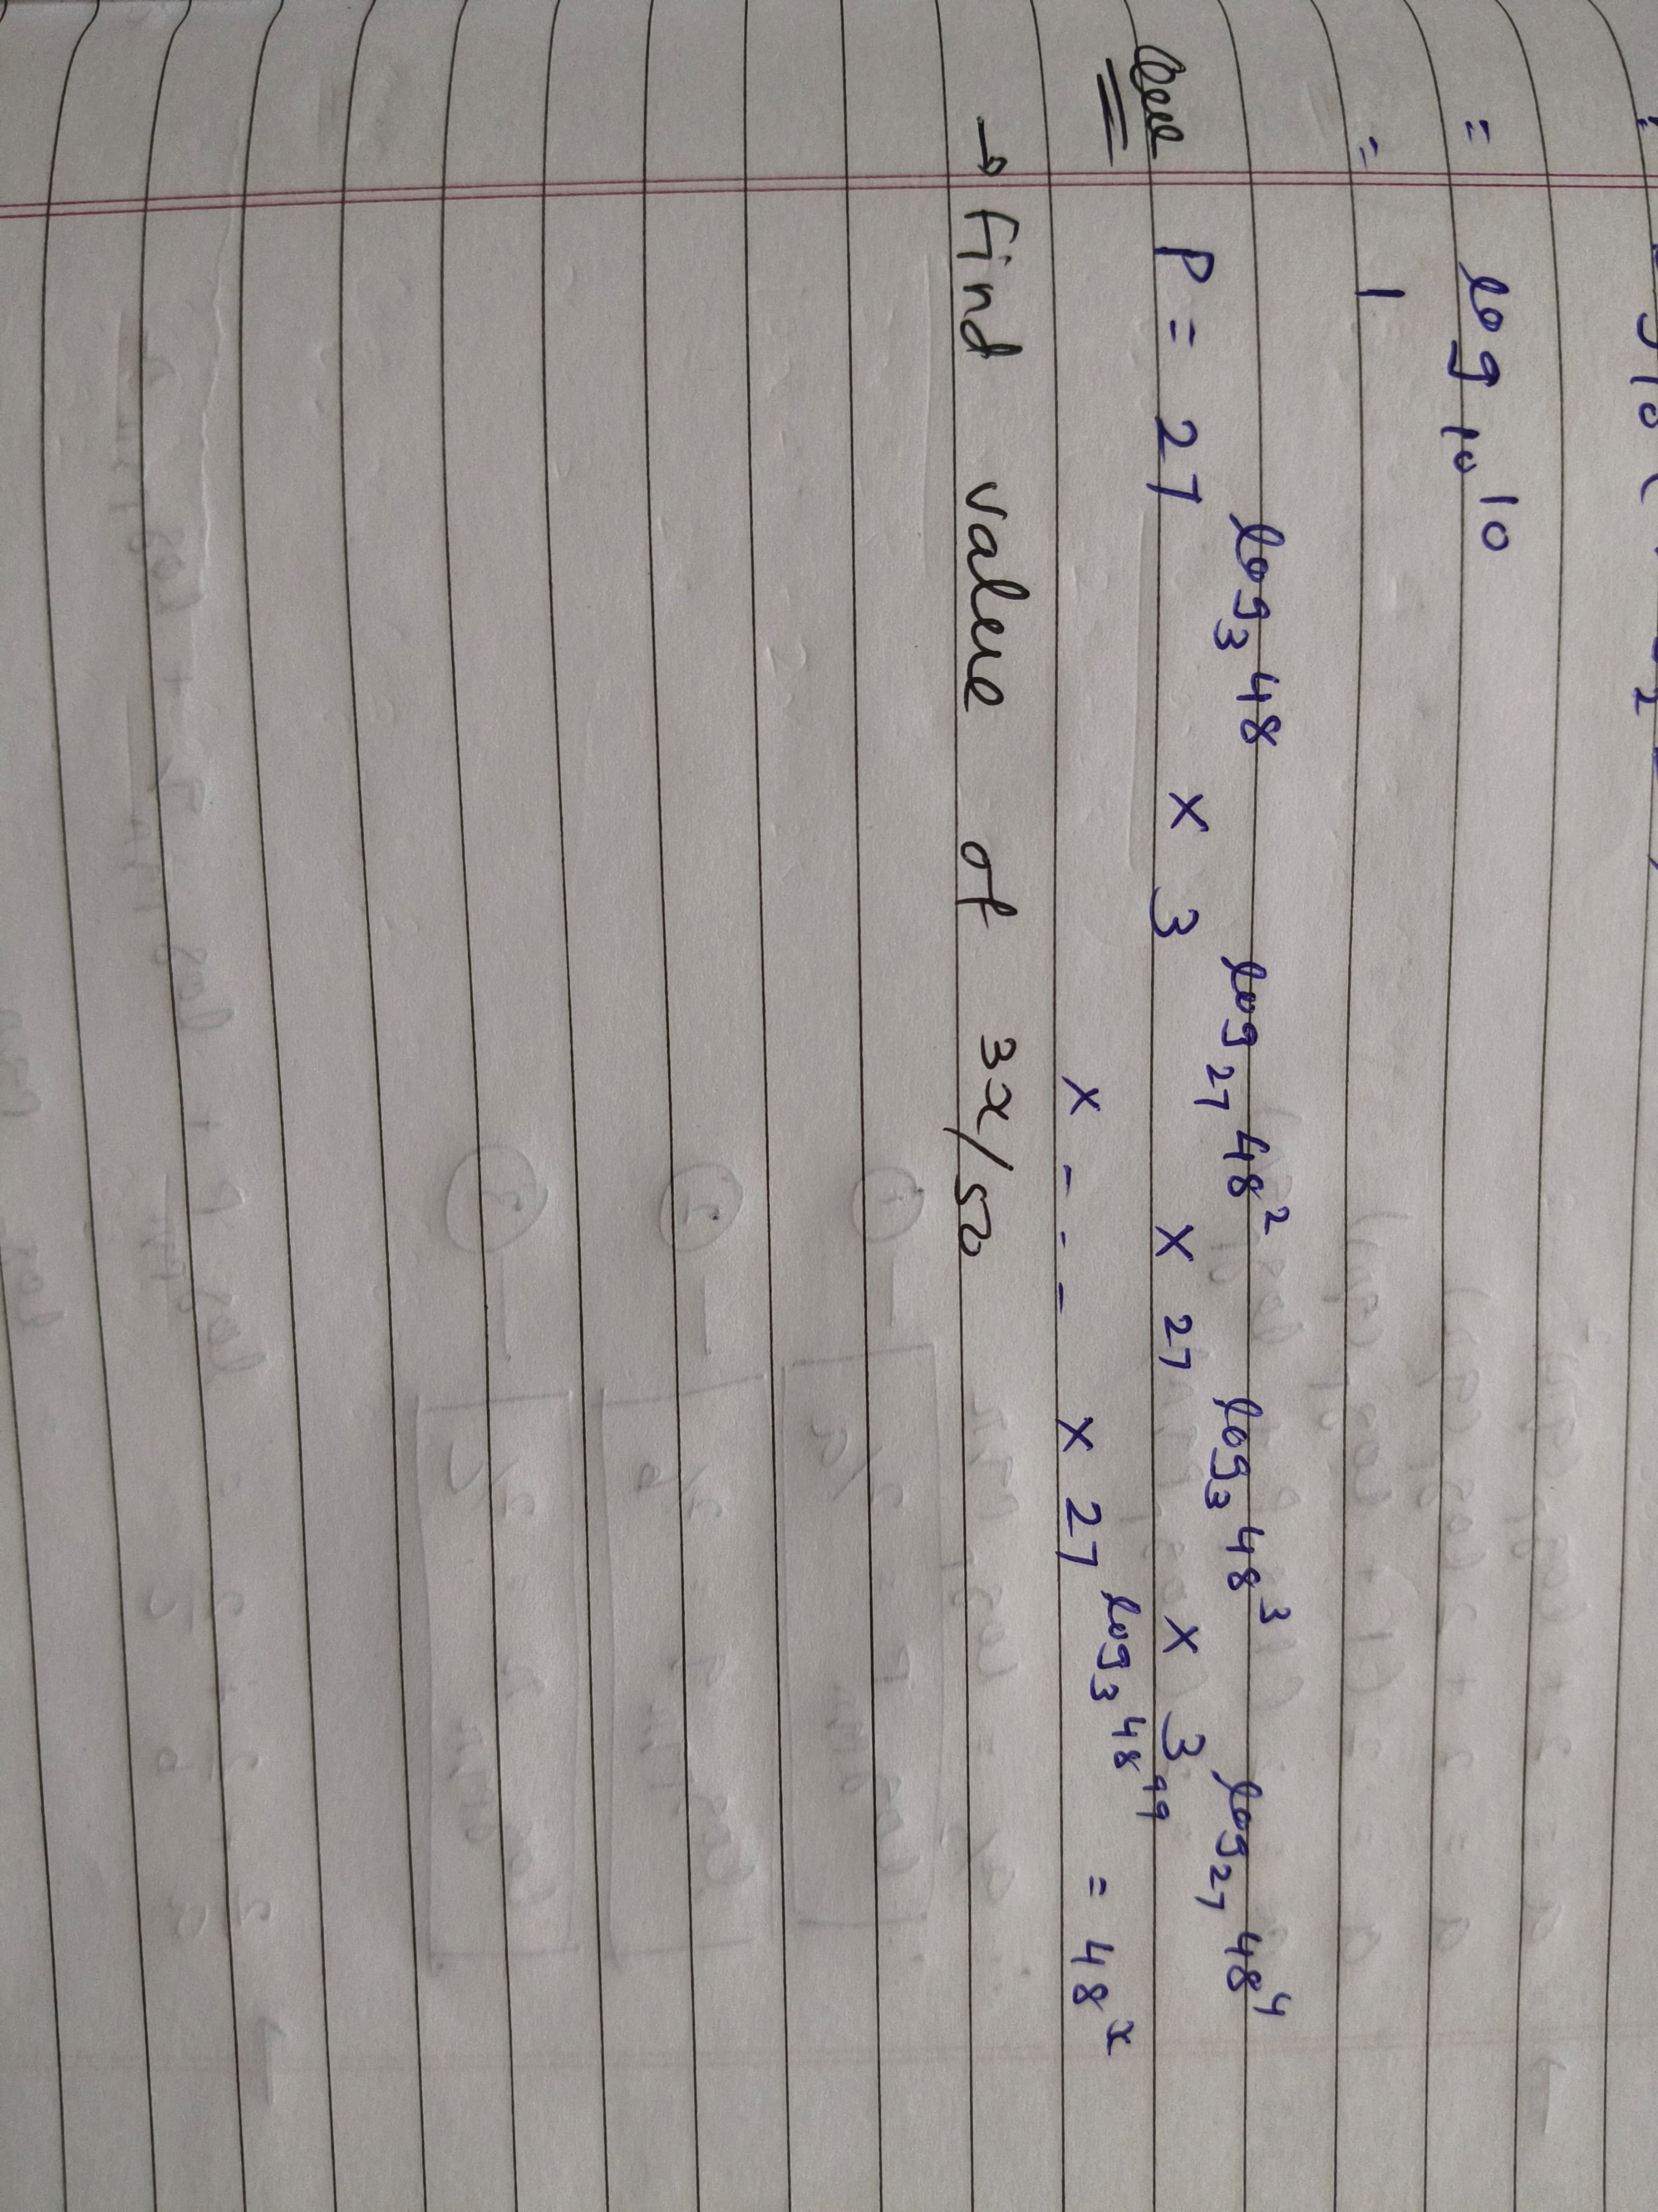 = log₁₀ 10
= 1
Que P = 27^(log₃ 48) × 3^(log₂₇ 48²) × 27^(log₃ 48³) × 3^(log₂₇ 48⁴)
× - - - × 27^(log₃ 48⁹⁹) = 48^x
→ find value of 3x/50